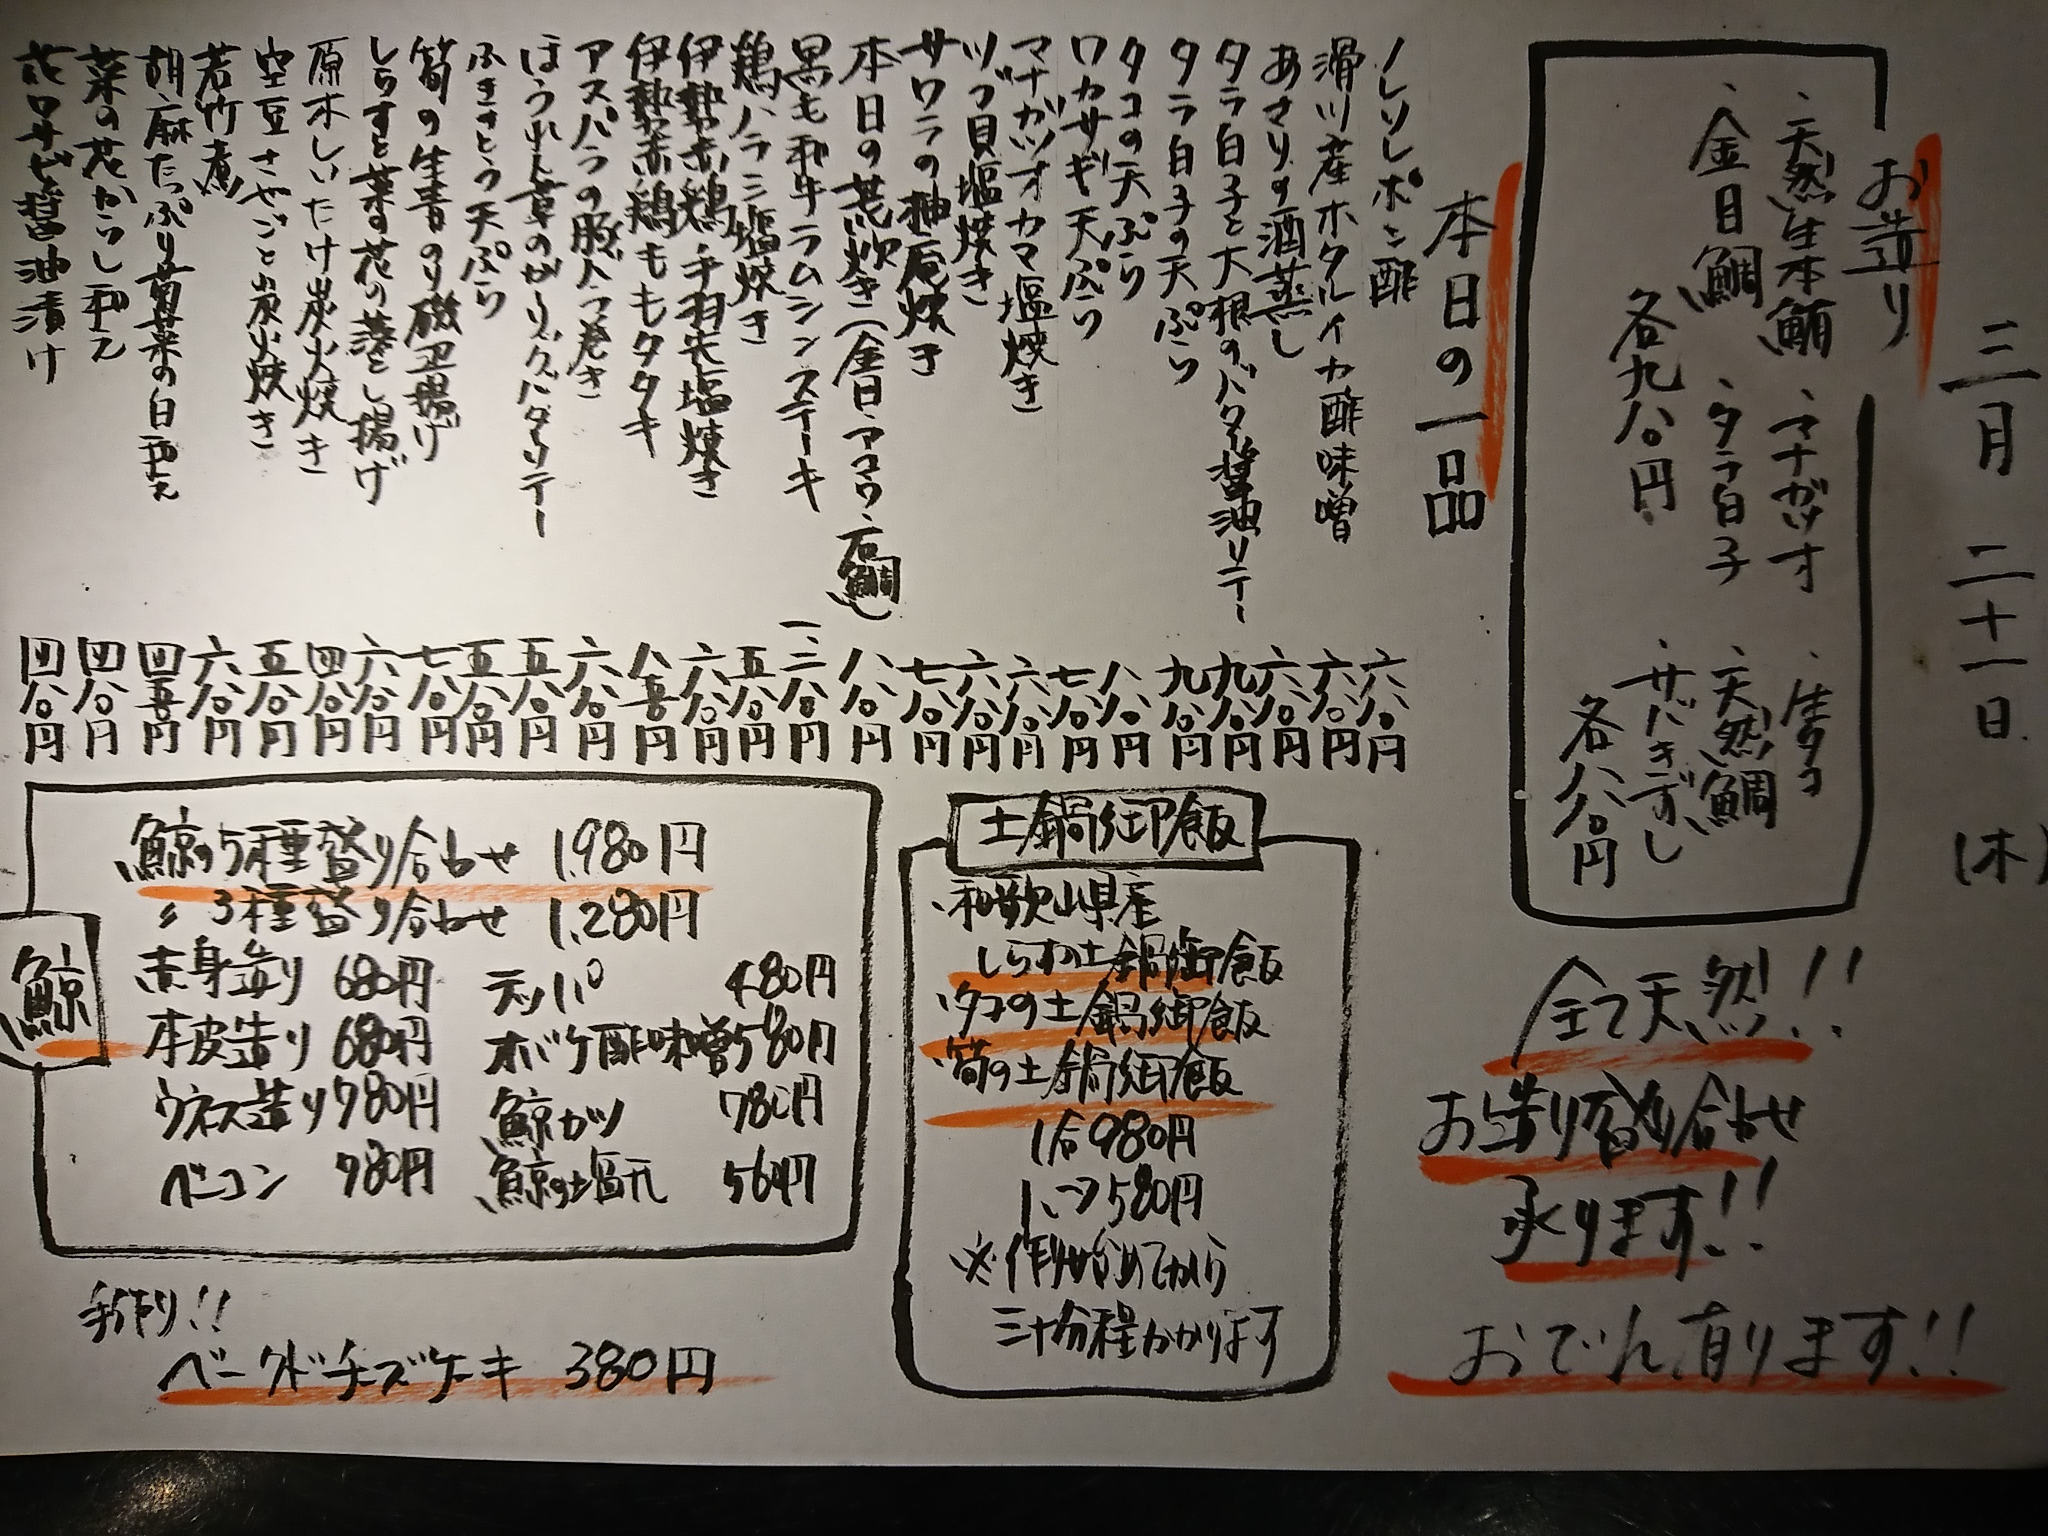 三月二十一日(木)
お造り
・天然生本鮪 ・マナガツオ ・生タコ
・金目鯛 ・タラ白子 ・天然鯛
各九八〇円 ・サバきずし
各八八〇円
本日の一品
ノレソレポン酢 六八〇円
滑川産ホタルイカ酢味噌 六八〇円
あさりの酒蒸し 六八〇円
タラ白子と大根のバター醤油ソテー 九八〇円
タラ白子の天ぷら 九八〇円
タコの天ぷら 八八〇円
ワカサギ天ぷら 七八〇円
マナガツオカマ塩焼き 六八〇円
ツブ貝塩焼き 六八〇円
サワラの柚庵焼き 七八〇円
本日の荒炊き(金目・アコウ・石鯛) 八八〇円
黒毛和牛ラムシンステーキ 一三八〇円
鶏ハラミ塩焼き 五八〇円
伊勢赤鶏手羽先塩焼き 六八〇円
伊勢赤鶏ももタタキ 八三〇円
アスパラの豚バラ巻き 六八〇円
ほうれん草のガーリックバターソテー 五八〇円
ふきのとう天ぷら 五八〇円
筍の生青のり磯辺揚げ 七八〇円
しらすと菜の花の落とし揚げ 六八〇円
原木しいたけ炭火焼き 四八〇円
空豆さやごと炭火焼き 五八〇円
若竹煮 六八〇円
胡麻たっぷり菊菜の白和え 四五〇円
菜の花からし和え 四八〇円
花ワサビ醤油漬け 四八〇円
全て天然!!
お造り盛り合わせ
承ります!!
おでん有ります!!
土鍋御飯
・和歌山県産
しらすの土鍋御飯
・タコの土鍋御飯
・筍の土鍋御飯
1合980円
ハーフ580円
※作り始めてから
三十分程かかります
鯨
鯨の5種盛り合わせ 1,980円
〃 3種盛り合わせ 1,280円
赤身造り 680円 テッパ 480円
本皮造り 680円 オバケ酢味噌 580円
ウネス造り 780円 鯨カツ 780円
ベーコン 980円 鯨の塩
手作り!!
ベークドチーズケーキ 380円